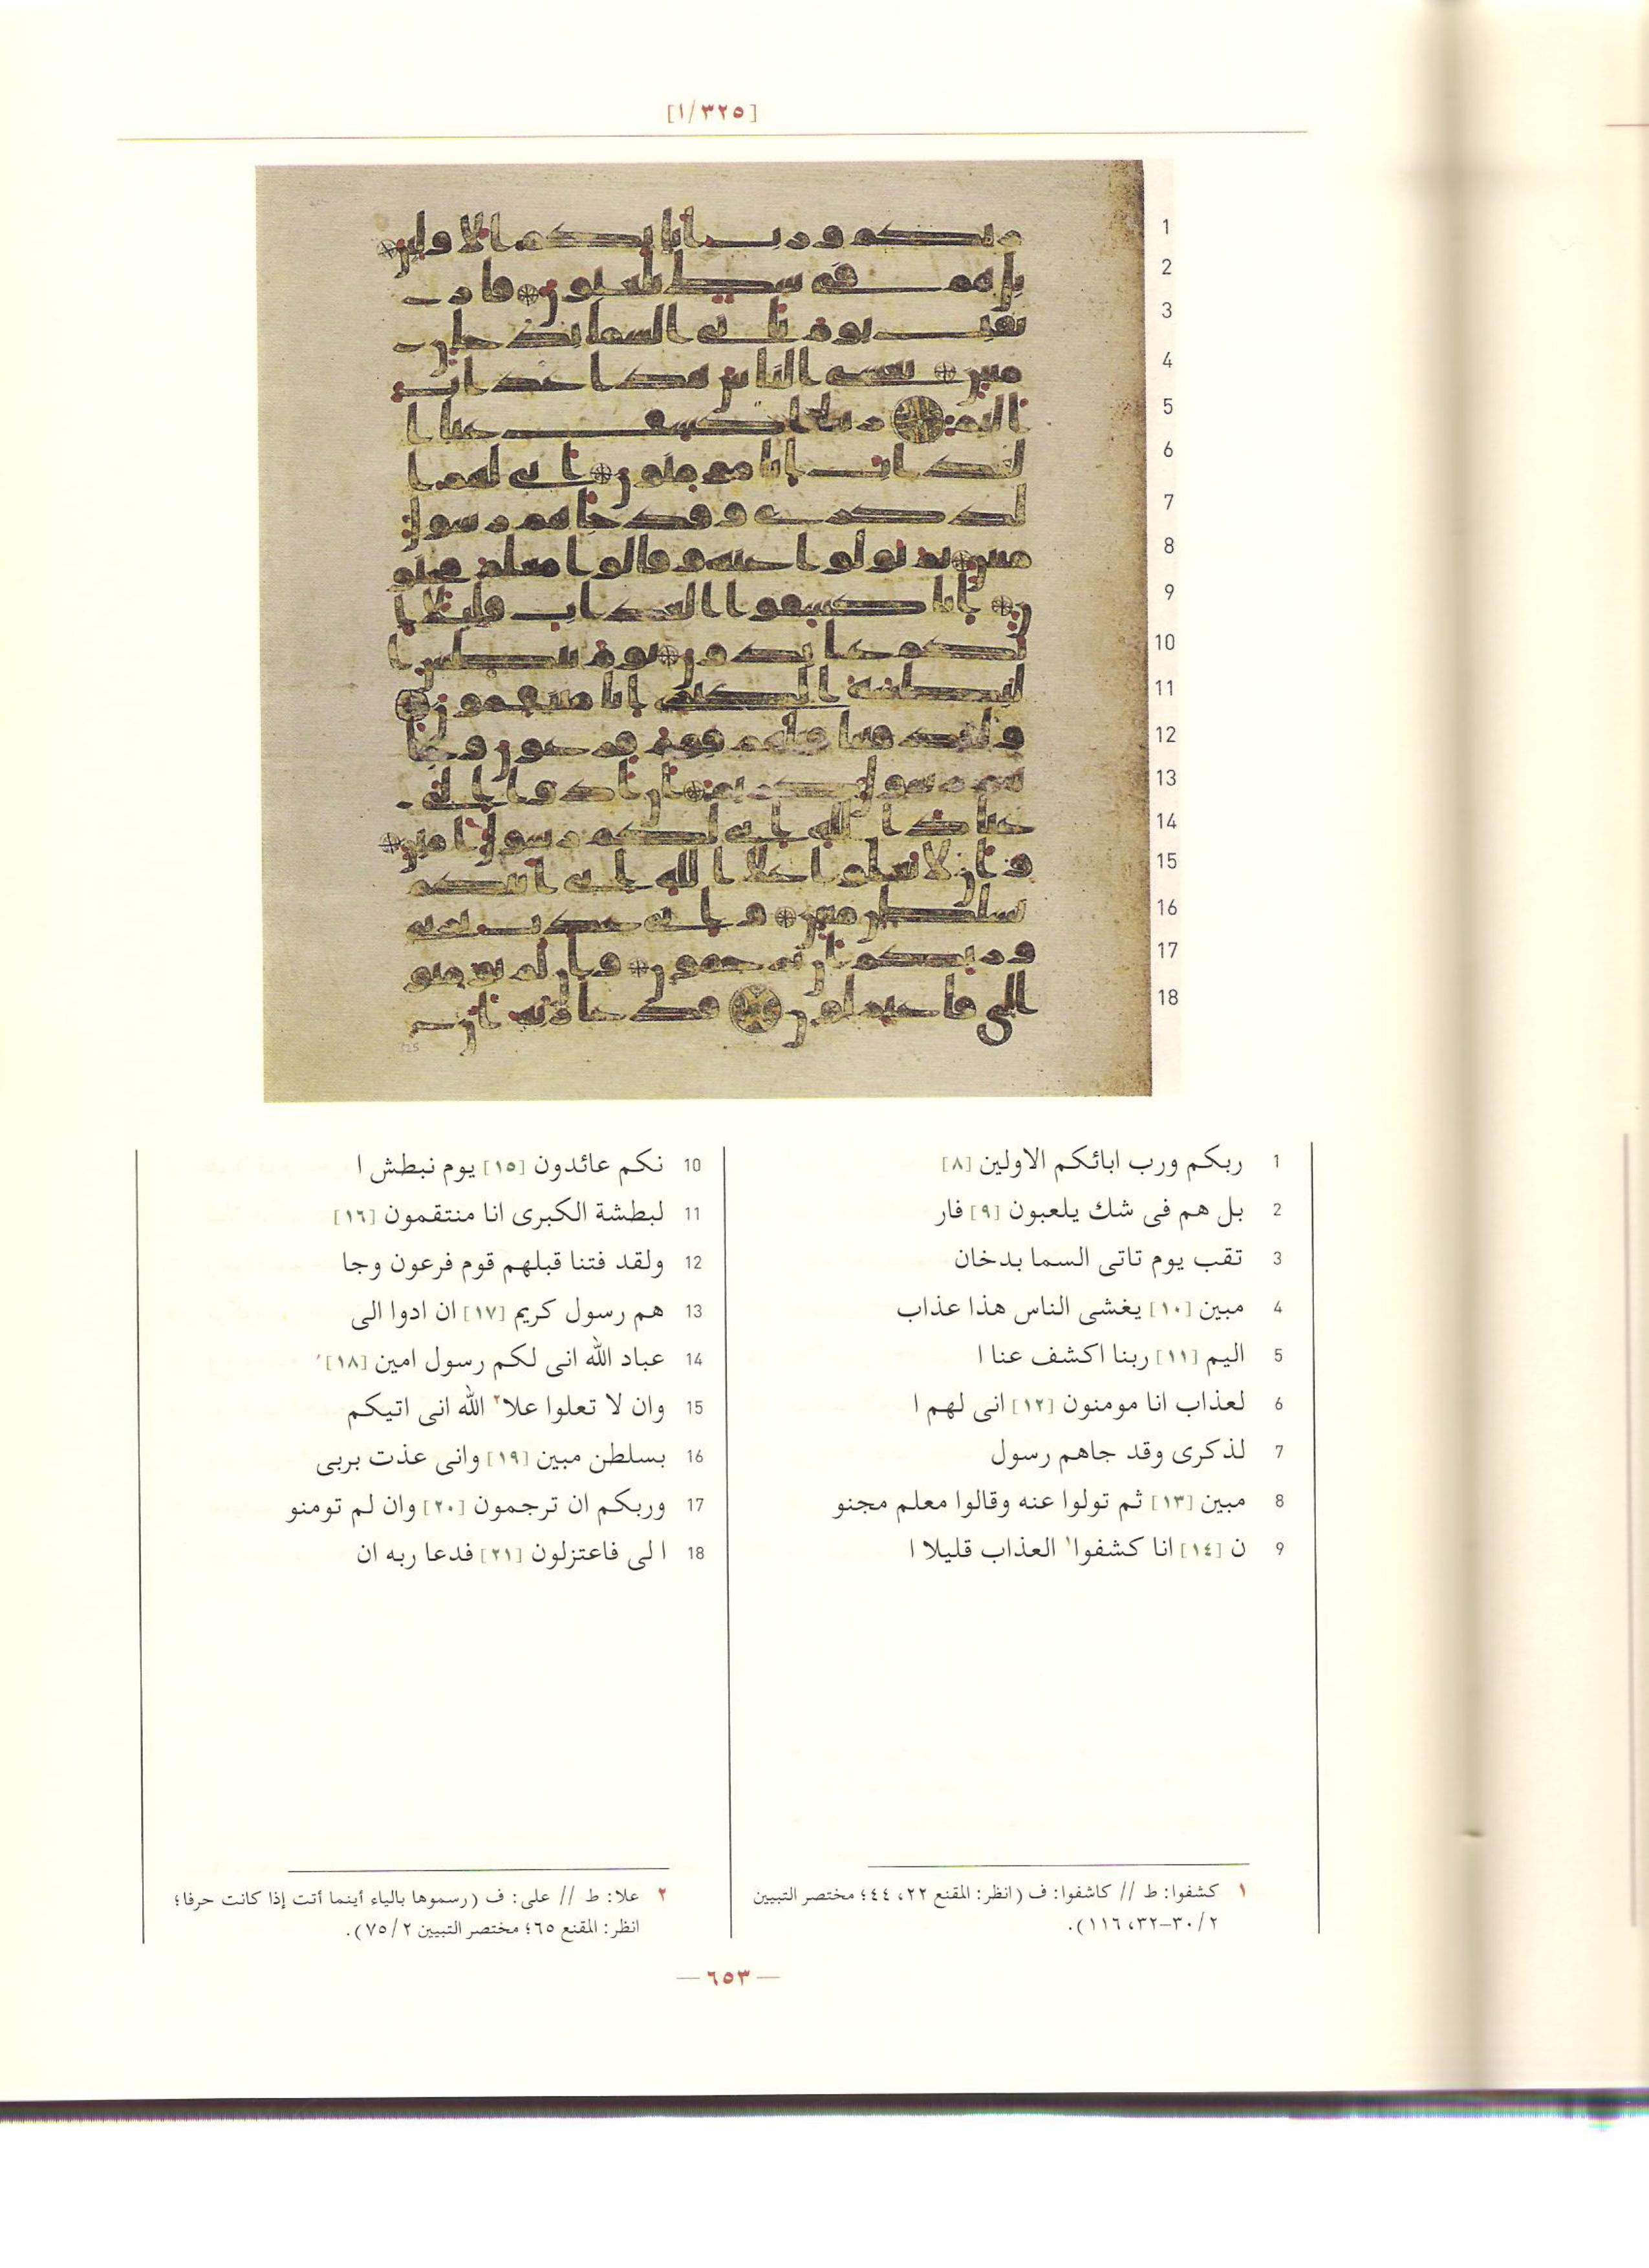 [٣٢٥/١]
1 ربكم ورب ابائكم الاولين [٨]
2 بل هم فى شك يلعبون [٩] فار
3 تقب يوم تاتى السما بدخان
4 مبين [١٠] يغشى الناس هذا عذاب
5 اليم [١١] ربنا اكشف عنا ا
6 لعذاب انا مومنون [١٢] انى لهم ا
7 لذكرى وقد جاهم رسول
8 مبين [١٣] ثم تولوا عنه وقالوا معلم مجنو
9 ن [١٤] انا كشفوا١ العذاب قليلا ا
10 نكم عائدون [١٥] يوم نبطش ا
11 لبطشة الكبرى انا منتقمون [١٦]
12 ولقد فتنا قبلهم قوم فرعون وجا
13 هم رسول كريم [١٧] ان ادوا الى
14 عباد الله انى لكم رسول امين [١٨]
15 وان لا تعلوا علا٢ الله انى اتيكم
16 بسلطن مبين [١٩] وانى عذت بربى
17 وربكم ان ترجمون [٢٠] وان لم تومنو
18 ا لى فاعتزلون [٢١] فدعا ربه ان
١ كشفوا: ط // كاشفوا: ف (انظر: المقنع ٢٢، ٤٤؛ مختصر التبيين
٢/ ٣٠-٣٢، ١١٦).
٢ علا: ط // على: ف (رسموها بالياء أينما أتت إذا كانت حرفا؛
انظر: المقنع ٦٥؛ مختصر التبيين ٢/ ٧٥).
—٦٥٣—